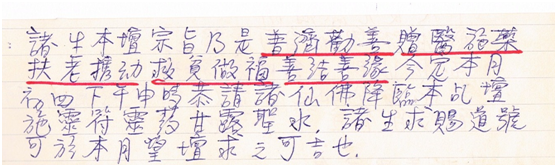 諸生本壇宗旨乃是普濟勸善贈醫施藥
扶老攜动救貧做福善結善緣今定本月
初四下午申時恭請諸仙佛降臨本乩壇
施靈符靈药甘露聖水，諸生求賜道號
可於本月望壇求之可吉也．